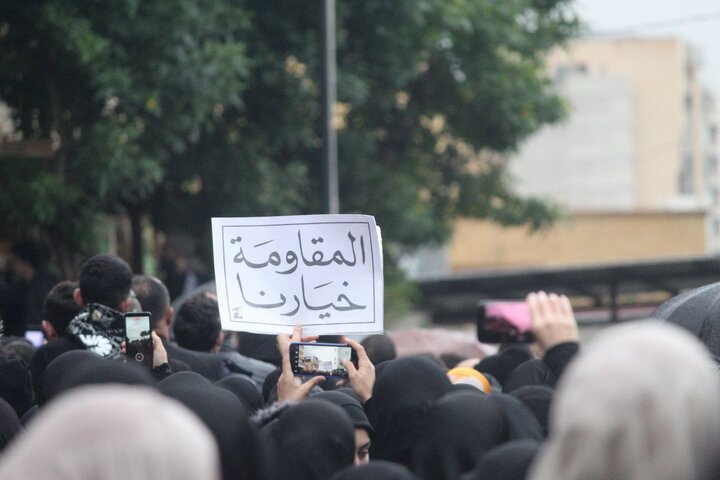 المقاوَمة
خيَارنا